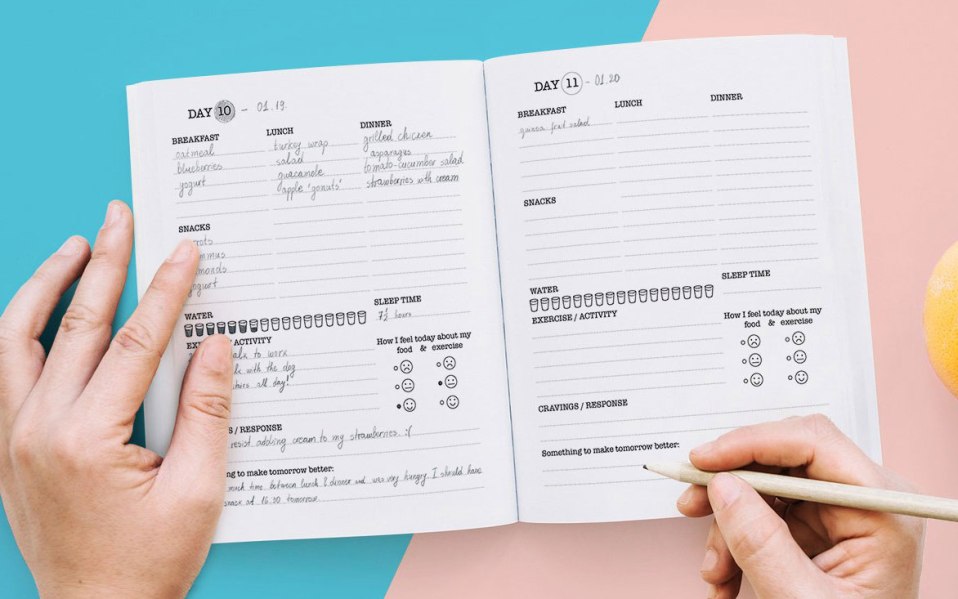 DAY 10 - 01.19.
BREAKFAST
oatmeal
blueberries
yogurt
LUNCH
turkey wrap
salad
guacamole
apple 'gonuts'
DINNER
grilled chicken
asparagus
tomato-cucumber salad
strawberries with cream
SNACKS
yogurt
WATER
SLEEP TIME
7½ hours
to work
with the dog
all day!
How I feel today about my
food & exercise
/ RESPONSE
resist adding cream to my strawberries :(
to make tomorrow better:
much time between lunch & dinner and was very hungry. I should have
snack at 16.30 tomorrow
DAY 11 - 01.20
BREAKFAST
quinoa fruit salad
LUNCH
DINNER
SNACKS
WATER
SLEEP TIME
EXERCISE / ACTIVITY
How I feel today about my
food & exercise
CRAVINGS / RESPONSE
Something to make tomorrow better: